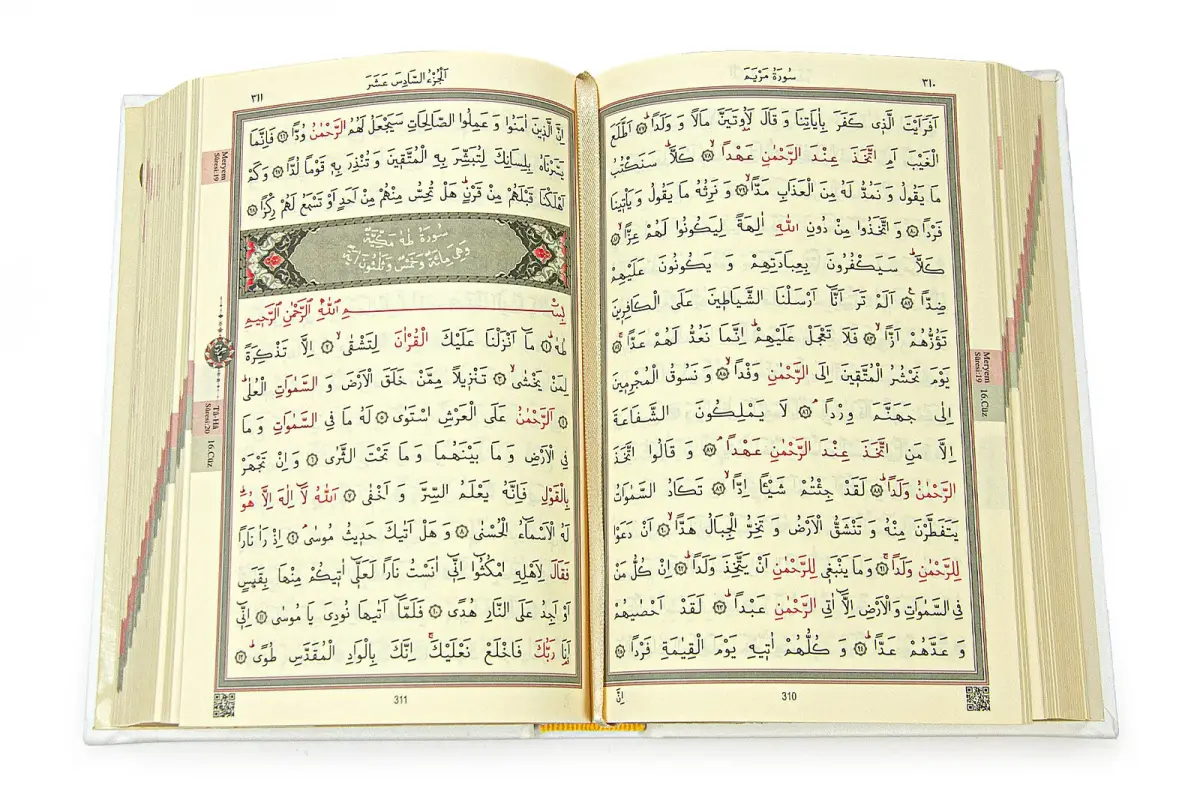 سُورَةُ مَرْيَمَ
٣١٠
اَفَرَاَيْتَ الَّذٖي كَفَرَ بِاٰيَاتِنَا وَ قَالَ لَاُوتَيَنَّ مَالًا وَ وَلَدًاؕ ﴿٧٧﴾ اَطَّلَعَ
الْغَيْبَ اَمِ اتَّخَذَ عِنْدَ الرَّحْمٰنِ عَهْدًاۙ ﴿٧٨﴾ كَلَّاؕ سَنَكْتُبُ
مَا يَقُولُ وَ نَمُدُّ لَهُ مِنَ الْعَذَابِ مَدًّاۙ ﴿٧٩﴾ وَ نَرِثُهُ مَا يَقُولُ وَ يَأْتٖينَا
فَرْدًا ﴿٨٠﴾ وَ اتَّخَذُوا مِنْ دُونِ اللّٰهِ اٰلِهَةً لِيَكُونُوا لَهُمْ عِزًّاۙ ﴿٨١﴾
كَلَّاؕ سَيَكْفُرُونَ بِعِبَادَتِهِمْ وَ يَكُونُونَ عَلَيْهِمْ
ضِدًّا ﴿٨٢﴾ اَلَمْ تَرَ اَنَّا اَرْسَلْنَا الشَّيَاطٖينَ عَلَى الْكَافِرٖينَ
تَؤُزُّهُمْ اَزًّاۙ ﴿٨٣﴾ فَلَا تَعْجَلْ عَلَيْهِمْؕ اِنَّمَا نَعُدُّ لَهُمْ عَدًّاۚ ﴿٨٤﴾
يَوْمَ نَحْشُرُ الْمُتَّقٖينَ اِلَى الرَّحْمٰنِ وَفْدًاۙ ﴿٨٥﴾ وَ نَسُوقُ الْمُجْرِمٖينَ
اِلٰى جَهَنَّمَ وِرْدًاۘ ﴿٨٦﴾ لَا يَمْلِكُونَ الشَّفَاعَةَ
اِلَّا مَنِ اتَّخَذَ عِنْدَ الرَّحْمٰنِ عَهْدًاۘ ﴿٨٧﴾ وَ قَالُوا اتَّخَذَ
الرَّحْمٰنُ وَلَدًاؕ ﴿٨٨﴾ لَقَدْ جِئْتُمْ شَيْـًٔا اِدًّاۙ ﴿٨٩﴾ تَكَادُ السَّمٰوَاتُ
يَتَفَطَّرْنَ مِنْهُ وَ تَنْشَقُّ الْاَرْضُ وَ تَخِرُّ الْجِبَالُ هَدًّاۙ ﴿٩٠﴾ اَنْ دَعَوْا
لِلرَّحْمٰنِ وَلَدًاۚ ﴿٩١﴾ وَمَا يَنْبَغٖي لِلرَّحْمٰنِ اَنْ يَتَّخِذَ وَلَدًاؕ ﴿٩٢﴾ اِنْ كُلُّ مَنْ
فِي السَّمٰوَاتِ وَالْاَرْضِ اِلَّا اٰتِي الرَّحْمٰنِ عَبْدًاؕ ﴿٩٣﴾ لَقَدْ اَحْصٰيهُمْ
وَ عَدَّهُمْ عَدًّاؕ ﴿٩٤﴾ وَ كُلُّهُمْ اٰتٖيهِ يَوْمَ الْقِيٰمَةِ فَرْدًا ﴿٩٥﴾
اِنَّ
310
Meryem
Sûresi:19
16.Cüz
اَلْجُزْءُ السَّادِسَ عَشَرَ
٣١١
اِنَّ الَّذٖينَ اٰمَنُوا وَ عَمِلُوا الصَّالِحَاتِ سَيَجْعَلُ لَهُمُ الرَّحْمٰنُ وُدًّا ﴿٩٦﴾ فَاِنَّمَا
يَسَّرْنَاهُ بِلِسَانِكَ لِتُبَشِّرَ بِهِ الْمُتَّقٖينَ وَ تُنْذِرَ بِهٖ قَوْمًا لُدًّا ﴿٩٧﴾ وَ كَمْ
اَهْلَكْنَا قَبْلَهُمْ مِنْ قَرْنٍؕ هَلْ تُحِسُّ مِنْهُمْ مِنْ اَحَدٍ اَوْ تَسْمَعُ لَهُمْ رِكْزًا ﴿٩٨﴾
سُورَةُ طٰهٰ مَكِّيَّةٌ
وَهِيَ مِائَةٌ وَخَمْسٌ وَثَلٰثُونَ اٰيَةً
بِسْمِ اللّٰهِ الرَّحْمٰنِ الرَّحٖيمِ
طٰهٰۚ ﴿١﴾ مَا اَنْزَلْنَا عَلَيْكَ الْقُرْاٰنَ لِتَشْقٰىۙ ﴿٢﴾ اِلَّا تَذْكِرَةً
لِمَنْ يَخْشٰىۙ ﴿٣﴾ تَنْزٖيلًا مِمَّنْ خَلَقَ الْاَرْضَ وَ السَّمٰوَاتِ الْعُلٰىؕ
﴿٤﴾ اَلرَّحْمٰنُ عَلَى الْعَرْشِ اسْتَوٰى ﴿٥﴾ لَهُ مَا فِي السَّمٰوَاتِ وَ مَا
فِي الْاَرْضِ وَ مَا بَيْنَهُمَا وَ مَا تَحْتَ الثَّرٰى ﴿٦﴾ وَ اِنْ تَجْهَرْ
بِالْقَوْلِ فَاِنَّهُ يَعْلَمُ السِّرَّ وَ اَخْفٰى ﴿٧﴾ اَللّٰهُ لَا اِلٰهَ اِلَّا هُوَؕ
لَهُ الْاَسْمَاءُ الْحُسْنٰى ﴿٨﴾ وَ هَلْ اَتٰيكَ حَدٖيثُ مُوسٰىۘ ﴿٩﴾ اِذْ رَاٰ نَارًا
فَقَالَ لِاَهْلِهِ امْكُثُوا اِنّٖي اٰنَسْتُ نَارًا لَعَلّٖي اٰتٖيكُمْ مِنْهَا بِقَبَسٍ
اَوْ اَجِدُ عَلَى النَّارِ هُدًى ﴿١٠﴾ فَلَمَّا اَتٰيهَا نُودِيَ يَا مُوسٰى ﴿١١﴾ اِنّٖي
اَنَا رَبُّكَ فَاخْلَعْ نَعْلَيْكَۚ اِنَّكَ بِالْوَادِ الْمُقَدَّسِ طُوًىؕ ﴿١٢﴾
311
Meryem
Sûresi:19
Tâ-Hâ
Sûresi:20
16.Cüz